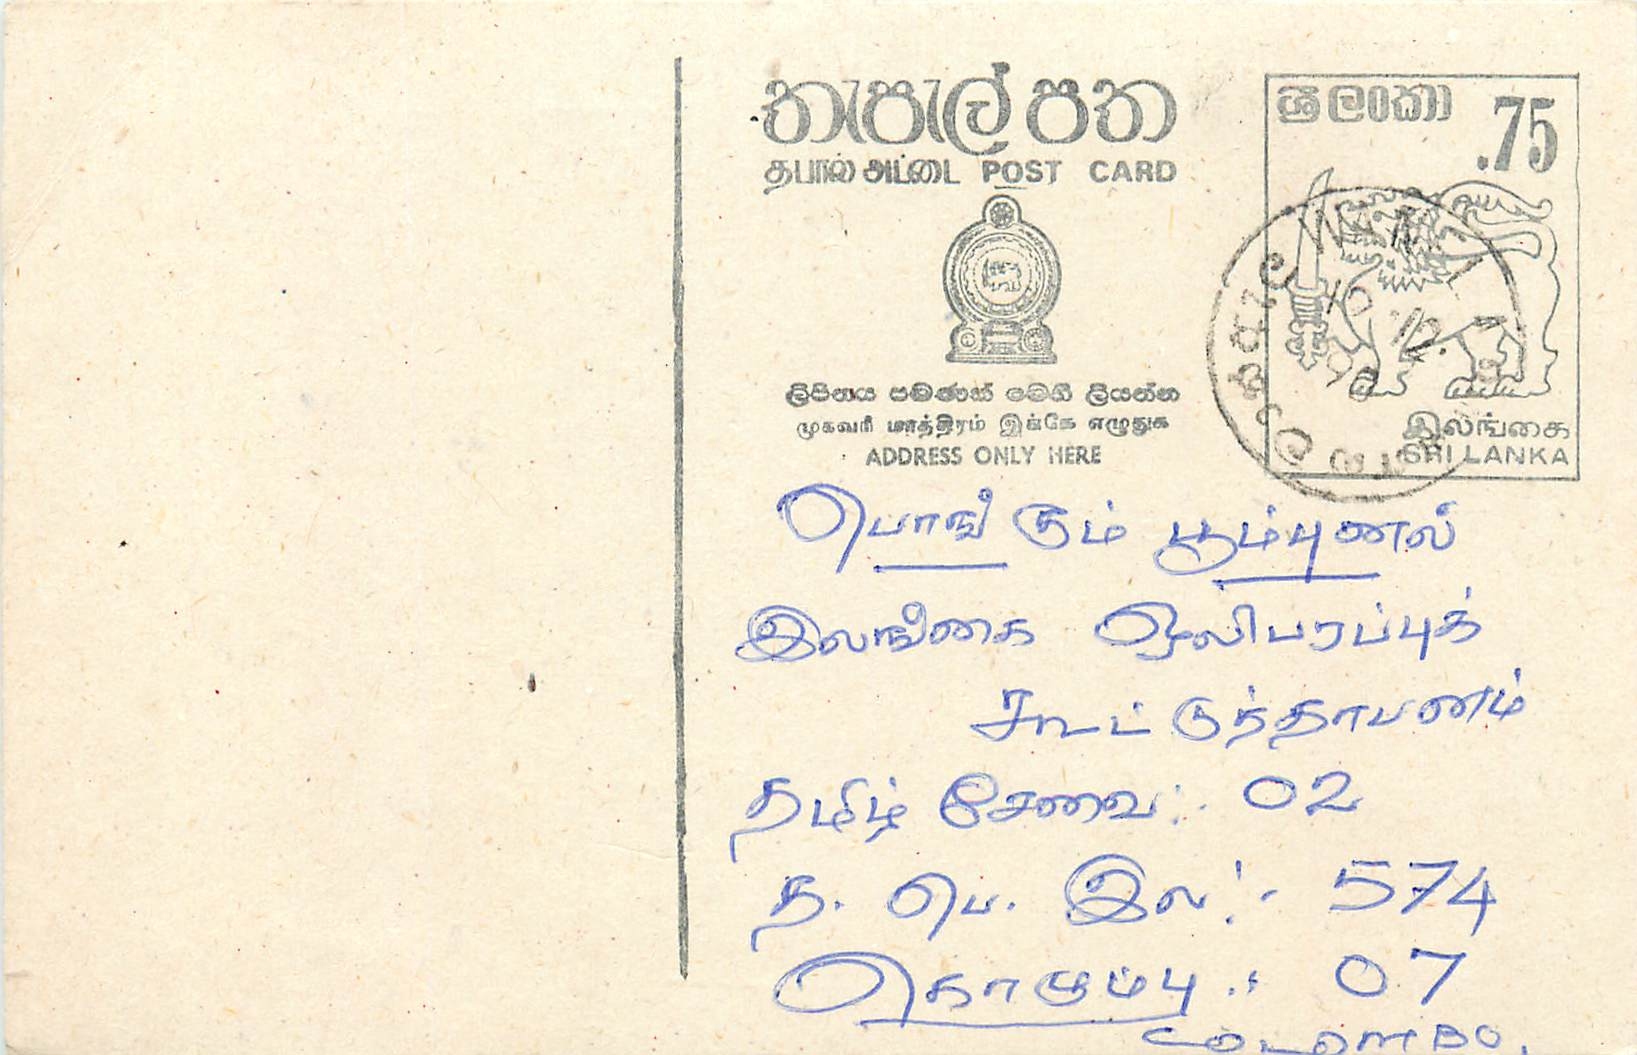 තැපැල් පත
தபால் அட்டை POST CARD
ශ්‍රී ලංකා .75
ලිපිනය පමණක් මෙහි ලියන්න
முகவரி மாத்திரம் இங்கே எழுதுக
ADDRESS ONLY HERE
இலங்கை
SRI LANKA
பொங்கும் பூம்புனல்
இலங்கை ஒலிபரப்புக்
கூட்டுத்தாபனம்
தமிழ் சேவை:- 02
த. பெ. இல:- 574
கொழும்பு:- 07
COLOMBO.